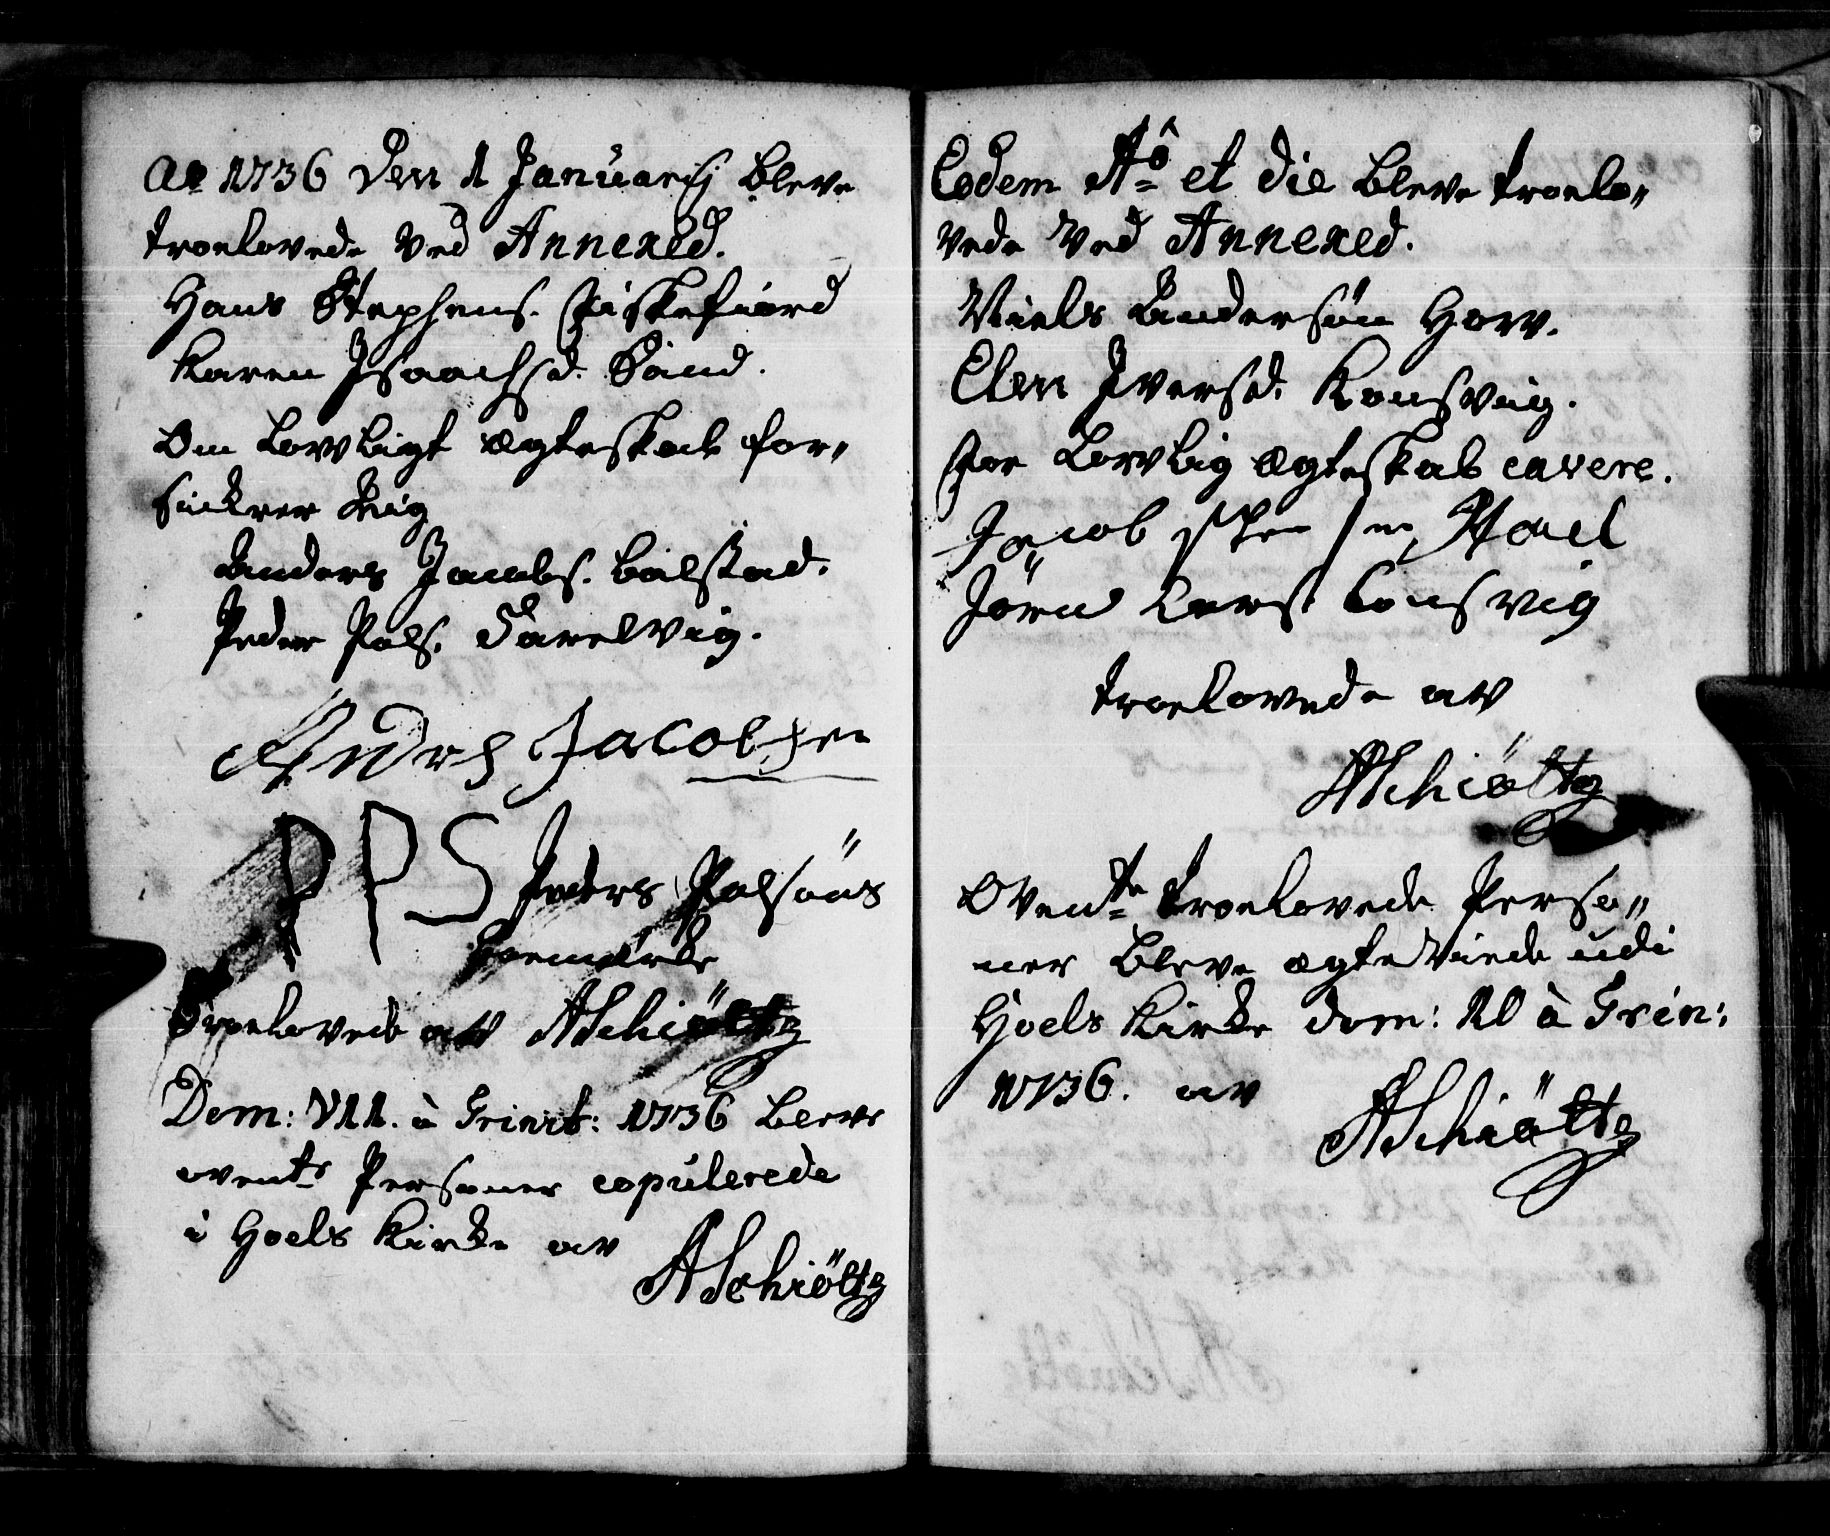 Ao 1736 den 1 Januarij bleve
troelovede ved Annexed.
Hans Stephens. Fiskefiord
Karen Isaachsd. Sund.
Om lovligt ægteskab for„
sickrer Wiig
Anders Jacobs. Balstad.
Peder Pals. Farelvig.
Andrs Jacobsen
PPS Peders Palsöns
boemerke
Troelovede av ASchiöltz
Dom: VII. à Trinit: 1736 bleve
ovente Personer copulerede
i Hoels Kirke av
ASchiöltz
Eodem Aô et die bleve troelo„
vede ved Annexed.
Niels Andersön Horv.
Elen Iversd. Konsviig.
For lovlig ægteskab cavere.
Jacob Hael
Jörn Lars. Consvig
troelovede av
ASchiöltz
Ovente troelovede Perso„
ner bleve ægteviede udi
Hoels Kirke dom: XI à Trin:
1736. av
ASchiöltz